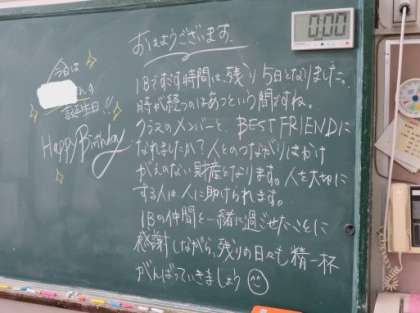 今日は
さんの
誕生日!!
Happy Birthday
おはようございます。
1Bですごす時間は、残り5日となりました。
時が経つのはあっという間ですね。
クラスのメンバーと、BEST FRIENDに
なれましたか?人とのつながりはかけ
がえのない財産となります。人を大切に
する人は人に助けられます。
1Bの仲間と一緒に過ごせたことに
感謝しながら、残りの日々も精一杯
がんばっていきましょう
0:00